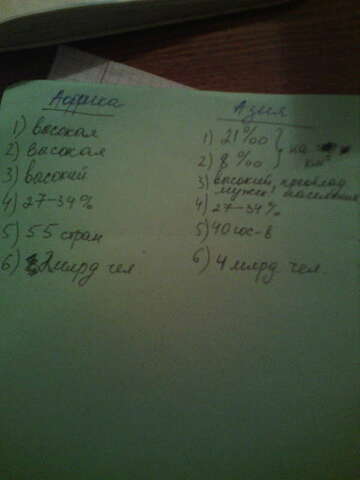 Африка
1) высокая
2) высокая
3) высокий
4) 27-34%
5) 55 стран
6) 2 млрд чел
Азия
1) 21‰ } на
2) 8‰ } км²
3) высокий, преоблад.
мужск. населения
4) 27-34%
5) 40 гос-в
6) 4 млрд чел.